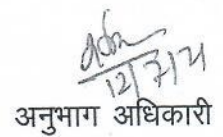 12/7/21
अनुभाग अधिकारी